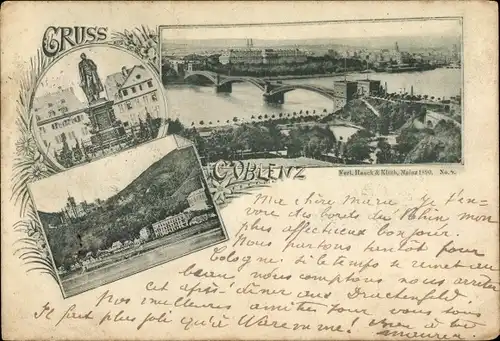 GRUSS
COBLENZ
Verl. Hauck & Klöth, Mainz 1890. No. 7.
Ma chère Marie Je t'en-
voie des bords du Rhin mon
plus affectueux bonjour.
Nous partons tantôt pour
Cologne. si le temps se remet au
beau nous comptons nous arrêter
cet après-dîner aux Drachenfeld.
Nos meilleures amitiés pour vous tous
Il fait plus joli qu'à Waremme!